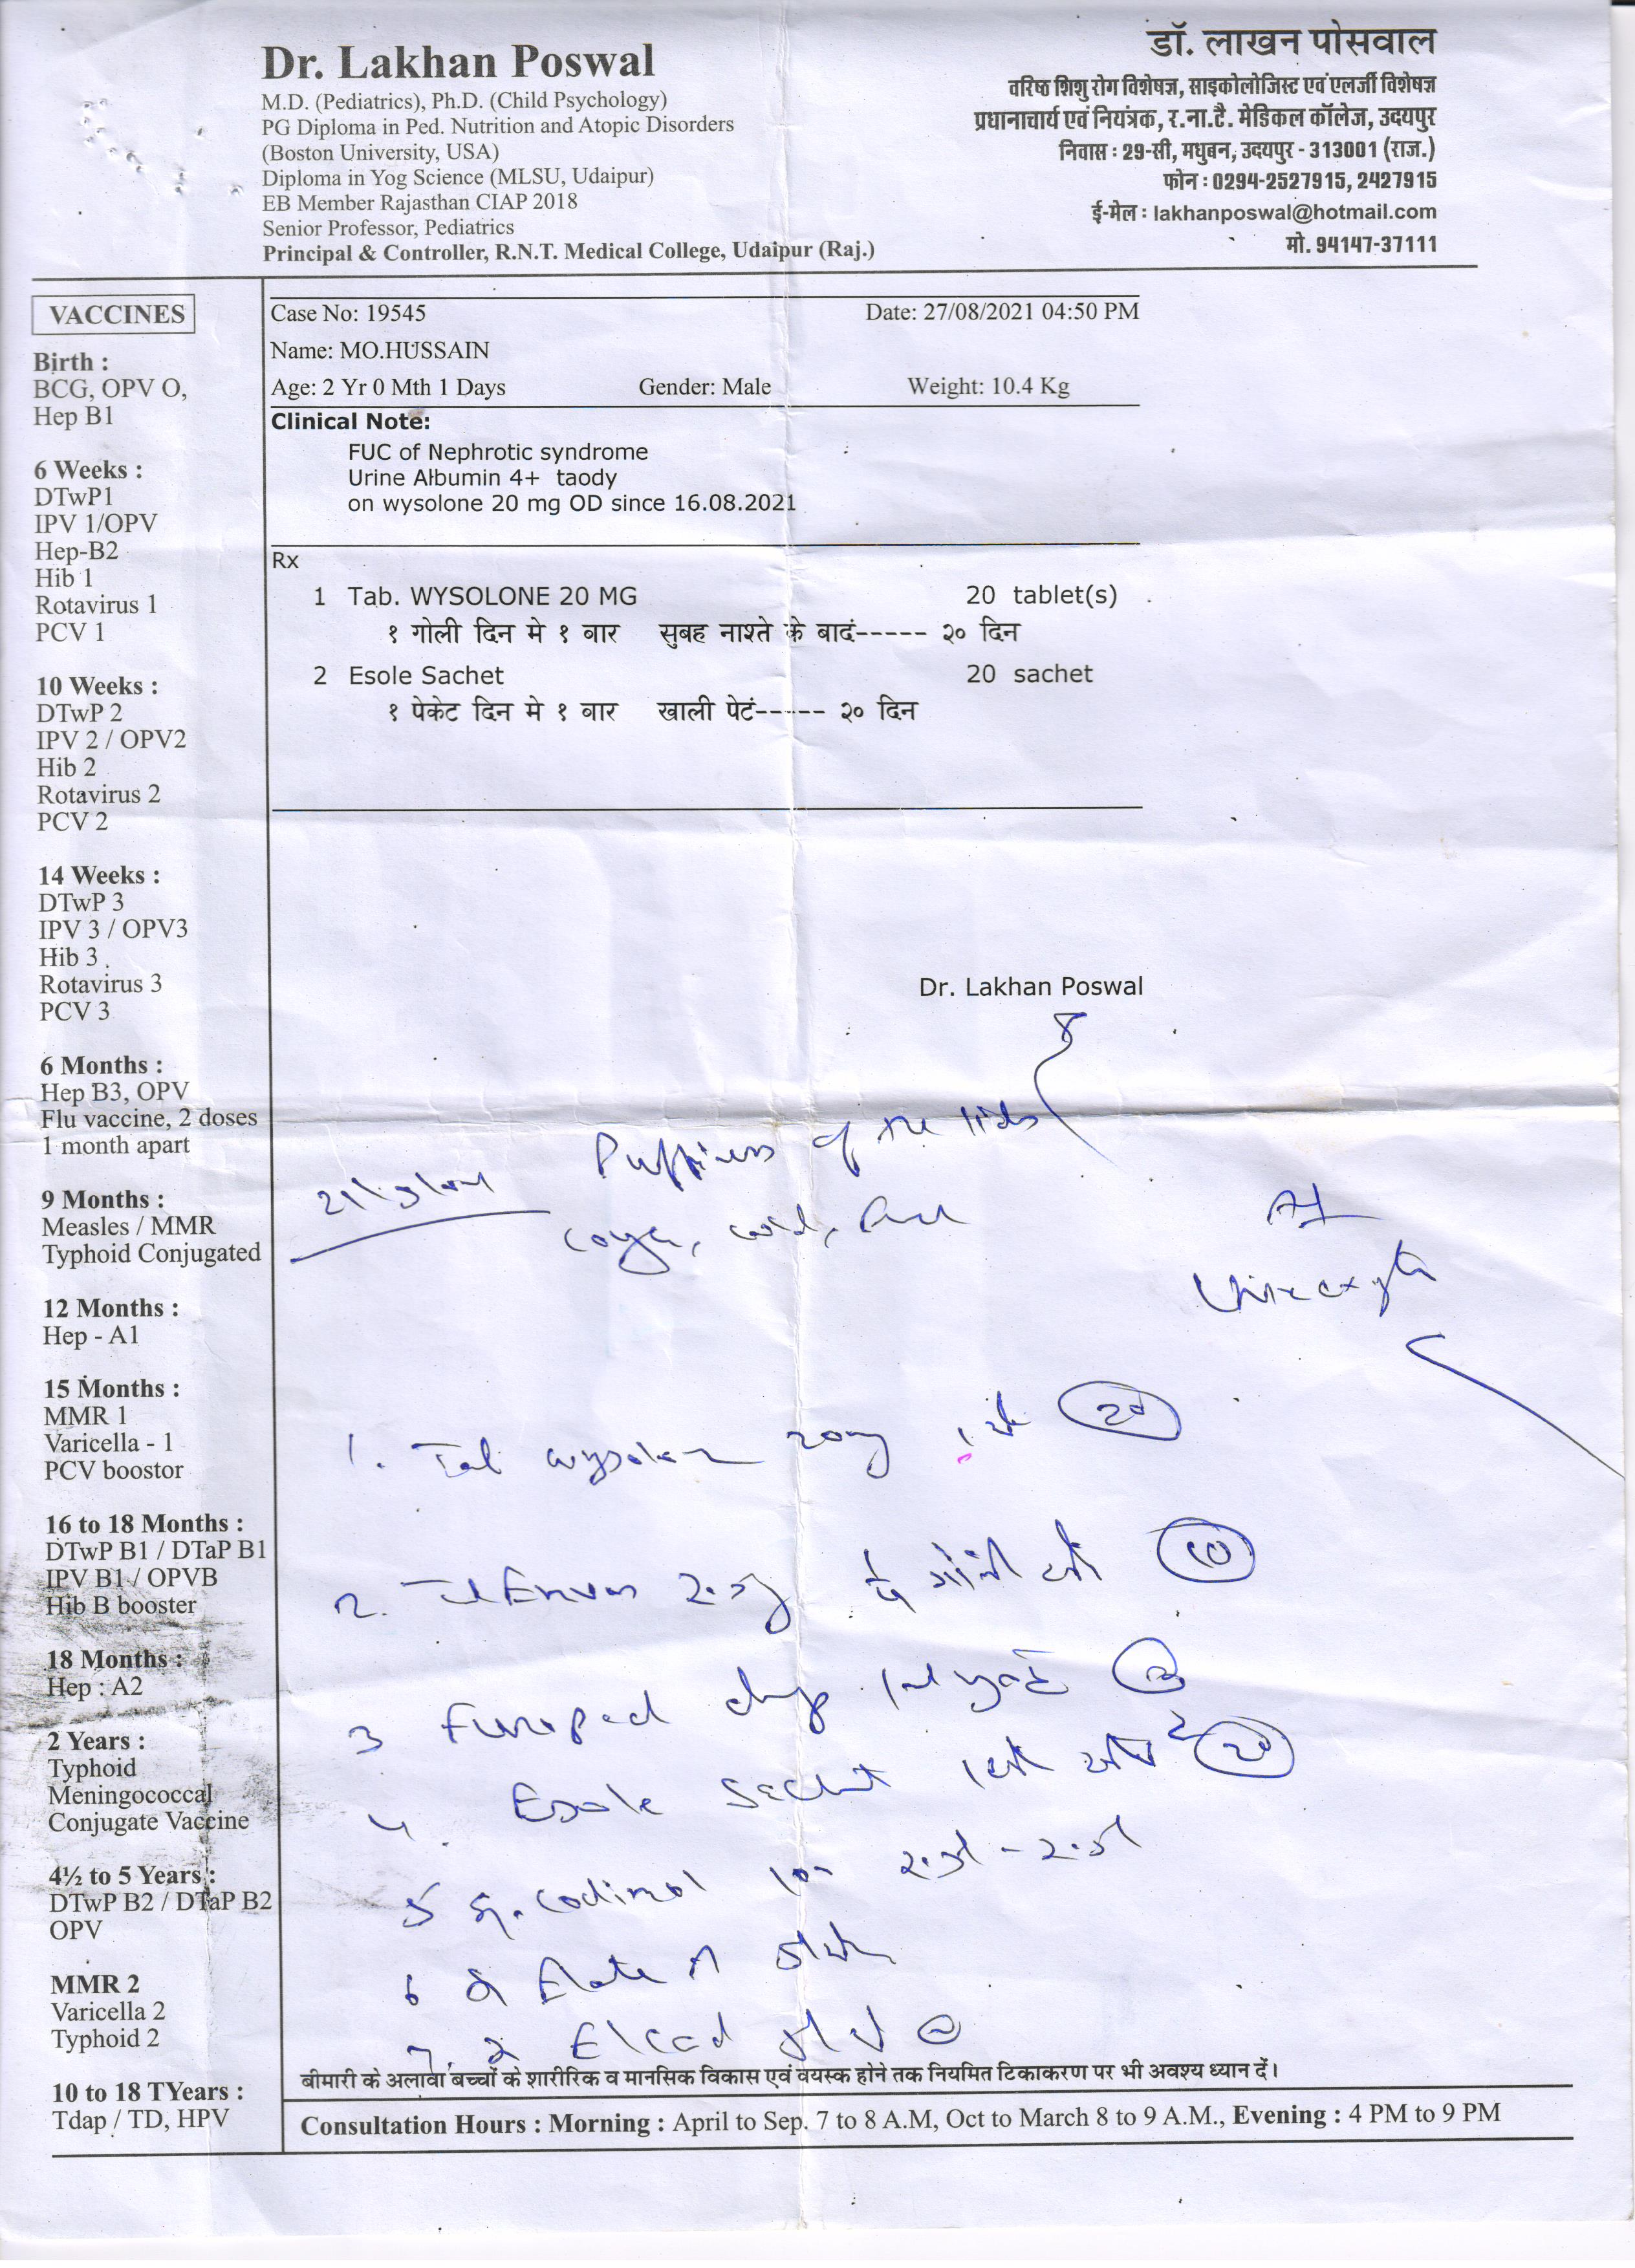 Dr. Lakhan Poswal
M.D. (Pediatrics), Ph.D. (Child Psychology)
PG Diploma in Ped. Nutrition and Atopic Disorders
(Boston University, USA)
Diploma in Yog Science (MLSU, Udaipur)
EB Member Rajasthan CIAP 2018
Senior Professor, Pediatrics
Principal & Controller, R.N.T. Medical College, Udaipur (Raj.)
डॉ. लाखन पोसवाल
वरिष्ठ शिशु रोग विशेषज्ञ, साइकोलोजिस्ट एवं एलर्जी विशेषज्ञ
प्रधानाचार्य एवं नियंत्रक, र.ना.टै. मेडिकल कॉलेज, उदयपुर
निवास : 29-सी, मधुबन, उदयपुर - 313001 (राज.)
फोन : 0294-2527915, 2427915
ई-मेल : lakhanposwal@hotmail.com
मो. 94147-37111
VACCINES
Birth :
BCG, OPV O,
Hep B1
6 Weeks :
DTwP1
IPV 1/OPV
Hep-B2
Hib 1
Rotavirus 1
PCV 1
10 Weeks :
DTwP 2
IPV 2 / OPV2
Hib 2
Rotavirus 2
PCV 2
14 Weeks :
DTwP 3
IPV 3 / OPV3
Hib 3
Rotavirus 3
PCV 3
6 Months :
Hep B3, OPV
Flu vaccine, 2 doses
1 month apart
9 Months :
Measles / MMR
Typhoid Conjugated
12 Months :
Hep - A1
15 Months :
MMR 1
Varicella - 1
PCV boostor
16 to 18 Months :
DTwP B1 / DTaP B1
IPV B1 / OPVB
Hib B booster
18 Months :
Hep : A2
2 Years :
Typhoid
Meningococcal
Conjugate Vaccine
4½ to 5 Years :
DTwP B2 / DTaP B2
OPV
MMR 2
Varicella 2
Typhoid 2
10 to 18 TYears :
Tdap / TD, HPV
Case No: 19545 Date: 27/08/2021 04:50 PM
Name: MO.HUSSAIN
Age: 2 Yr 0 Mth 1 Days Gender: Male Weight: 10.4 Kg
Clinical Note:
FUC of Nephrotic syndrome
Urine Albumin 4+ taody
on wysolone 20 mg OD since 16.08.2021
Rx
1 Tab. WYSOLONE 20 MG 20 tablet(s)
१ गोली दिन मे १ बार सुबह नाश्ते के बादं----- २० दिन
2 Esole Sachet 20 sachet
१ पेकेट दिन मे १ बार खाली पेटं----- २० दिन
Dr. Lakhan Poswal
Puffiness of the lids
cough, cold,
1. Tab wysolone 20mg 20
2. 10
3
4. Esole Sachet 20
5
6
7.
बीमारी के अलावा बच्चों के शारीरिक व मानसिक विकास एवं वयस्क होने तक नियमित टिकाकरण पर भी अवश्य ध्यान दें।
Consultation Hours : Morning : April to Sep. 7 to 8 A.M, Oct to March 8 to 9 A.M., Evening : 4 PM to 9 PM